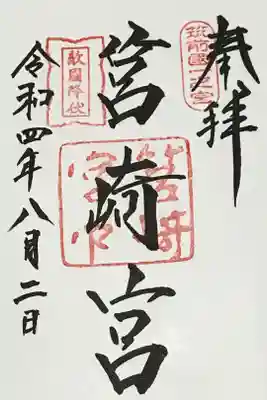 奉拝
筑前國一之宮
筥崎宮
敵國降伏
筥崎宮
令和四年八月二日